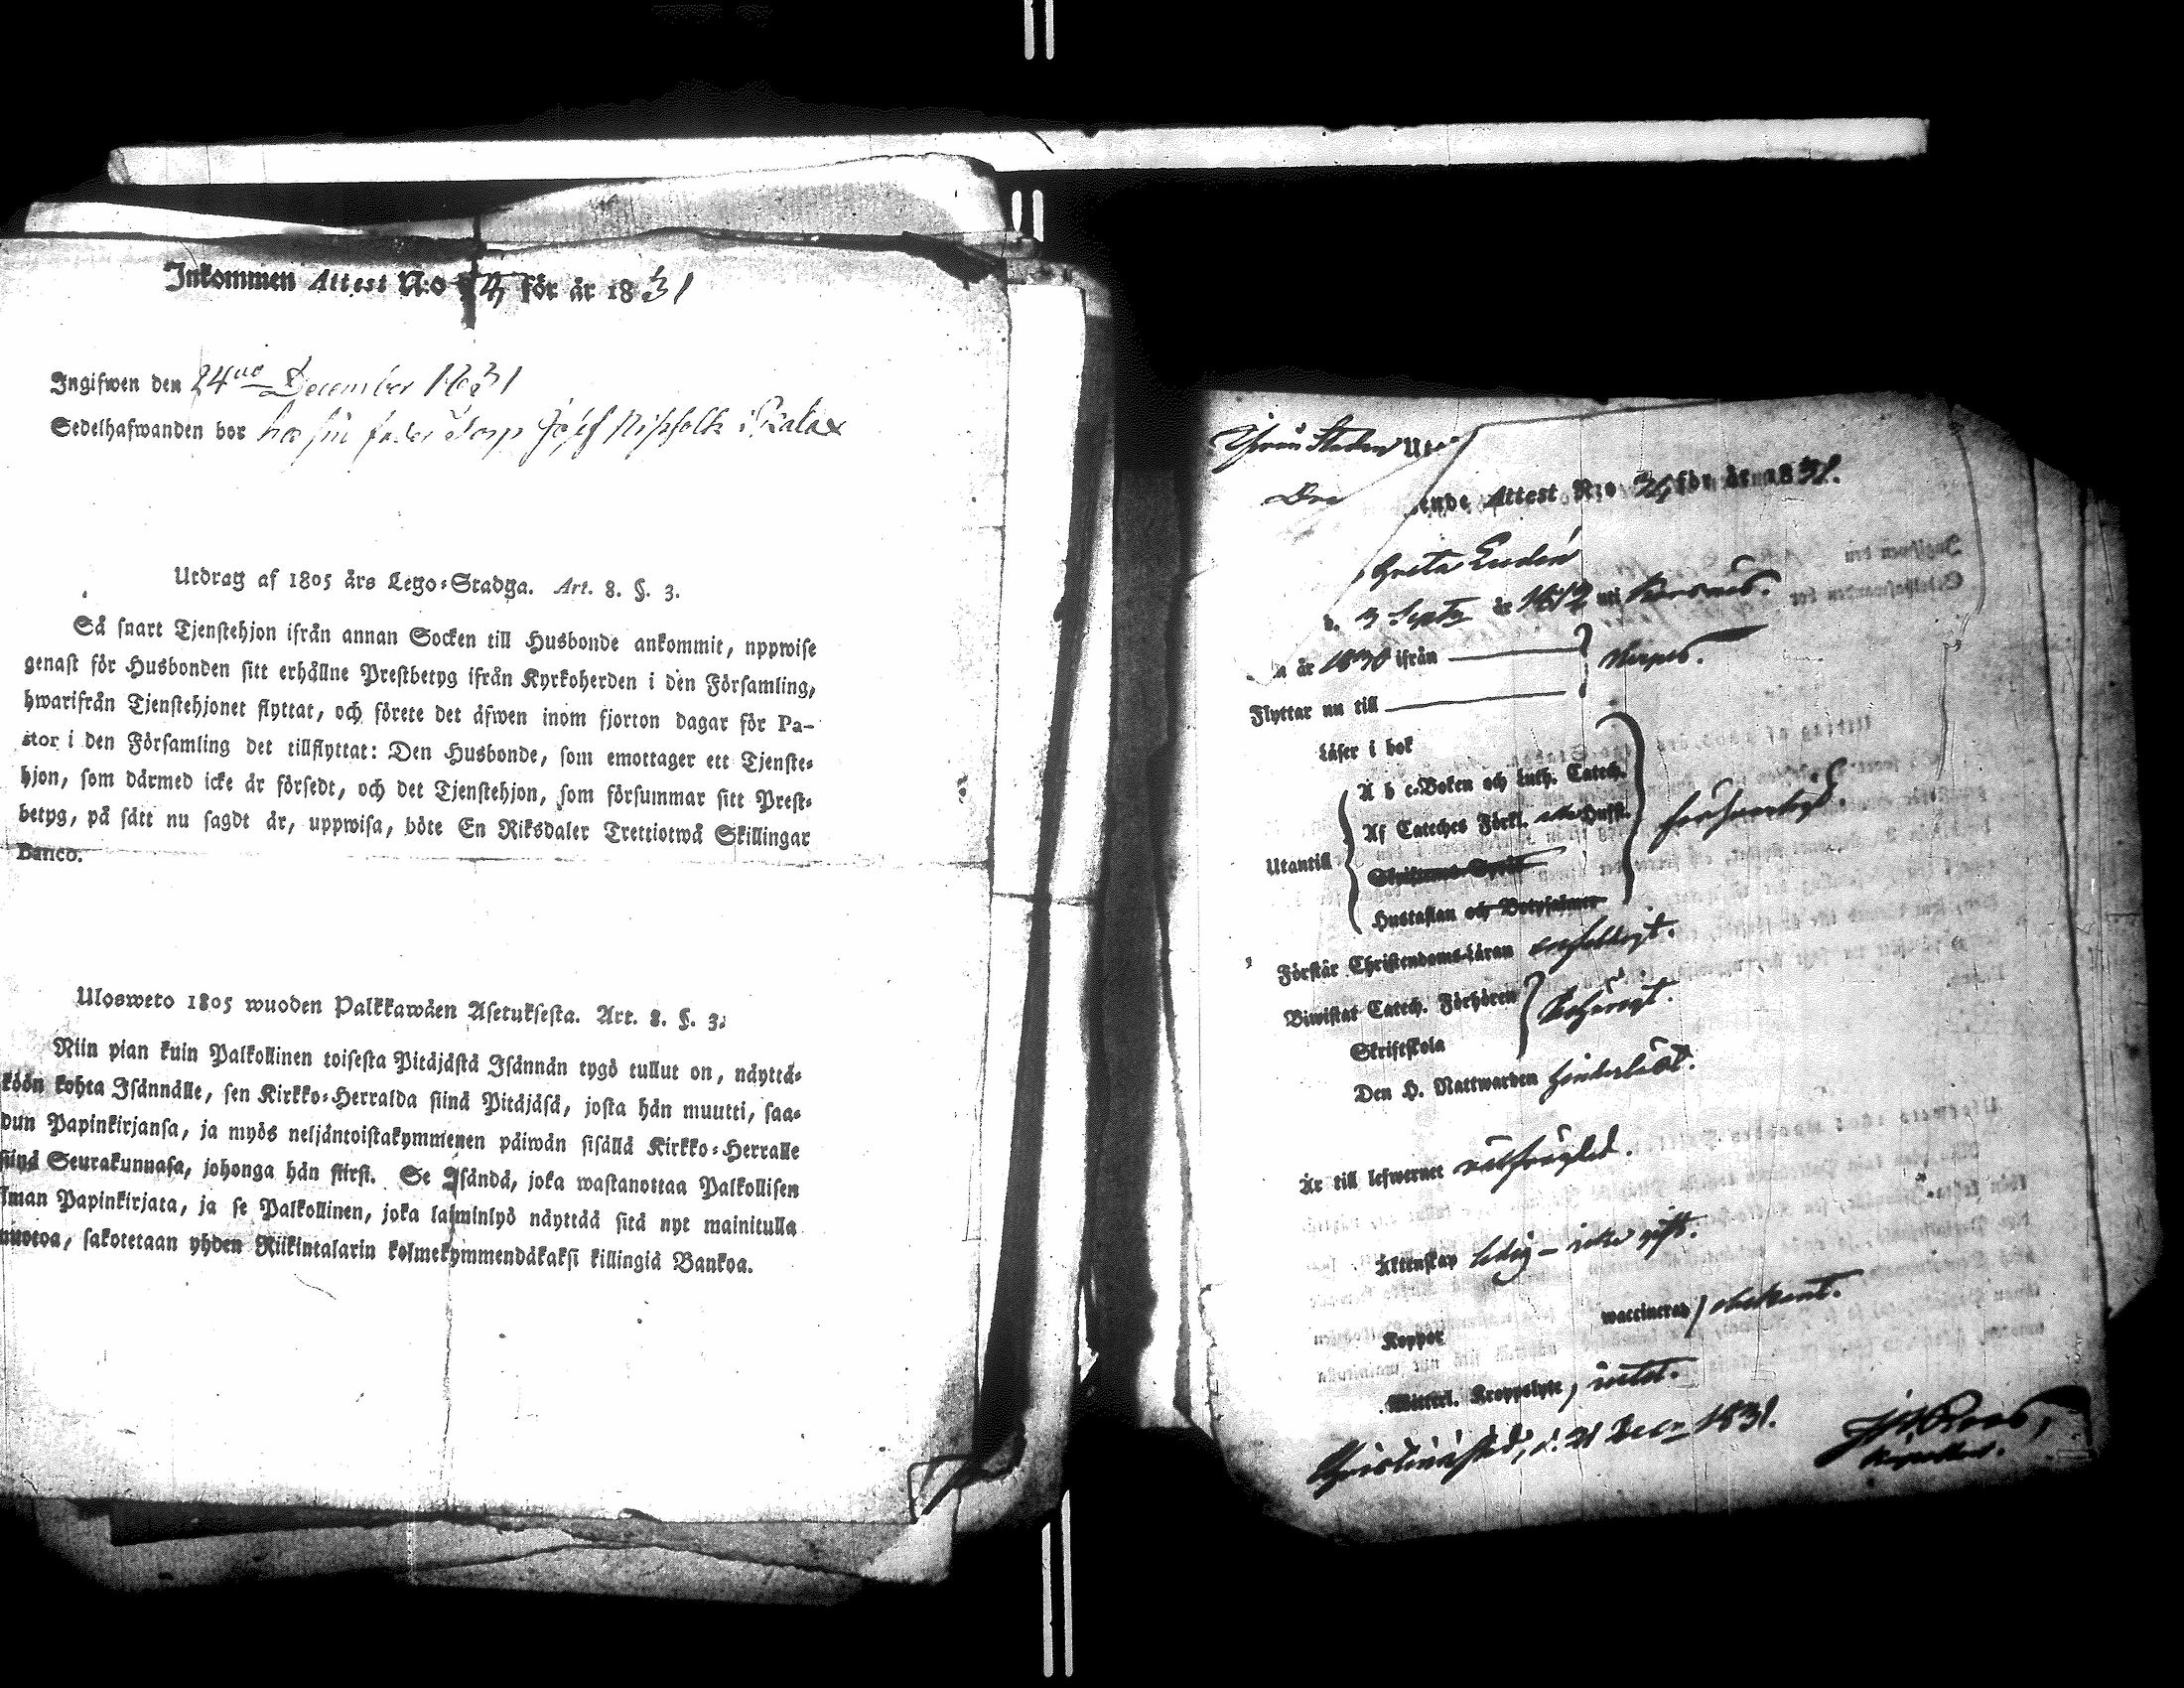 Inkommen Attest N:o för år 1831
Ingifwen den 24 December 1831
Sedelhafwanden bor hos sin fader Torp Josef i Ratax
Utdrag af 1805 års Lego-Stadga. Art. 8. §. 3.
Så snart Tjenstehjon ifrån annan Socken till Husbonde ankommit, uppwise
genast för Husbonden sitt erhållne Prestbetyg ifrån Kyrkoherden i den Församling,
hwarifrån Tjenstehjonet flyttat, och förete det äfwen inom fjorton dagar för Pa-
stor i den Församling det tillflyttat: Den Husbonde, som emottager ett Tjenste-
hjon, som därmed icke är försedt, och det Tjenstehjon, som försummar sitt Prest-
betyg, på sätt nu sagdt är, uppwisa, böte En Riksdaler Trettiotwå Skillingar
Banco.
Ulosweto 1805 wuoden Palkkawäen Asetuksesta. Art. 8. §. 3.
Niin pian kuin Palkollinen toisesta Pitäjästä Isännän tygö tullut on, näyttä-
köön kohta Isännälle, sen Kirkko-Herralda siinä Pitäjäsä, josta hän muutti, saa-
dun Papinkirjansa, ja myös neljäntoistakymmenen päiwän sisällä Kirkko-Herralle
siinä Seurakunnasa, johonga hän siirst. Se Isändä, joka wastanottaa Palkollisen
ilman Papinkirjata, ja se Palkollinen, joka laiminlyö näyttää sitä nyt mainitulla
muotoa, sakotetaan yhden Riikintalarin kolmekymmendäkaksi killingiä Bankoa.
Ifrån Staden Ut
ende Attest N:o 34 för år 1831.
Greta Ludén
d. 3 Septr år 1812 uti
n år 1830 ifrån
Flyttar nu till
Läser i bok
A b c-Boken och Luth. Catech.
Af Cateches Förkl. Hust.
Utantill
Skriftenes Språk
Hustaflan och Botpsalmer
försvarligt.
Förstår Christendoms-Läran enfaldigt.
Biwistat Catech. Förhören
Skriftskola
behörigt.
Den H. Nattwarden hinderlöst.
Är till lefwernet välfrägdad.
Äktenskap ledig – icke gift.
Koppor waccinerad obekant.
Witterl. Kroppslyte, intet.
Christinæstad, d. 21 Decr 1831.